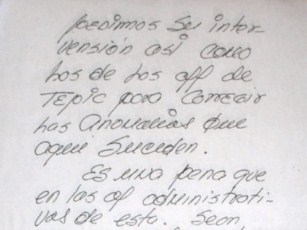 pedimos su inter-
vensión así como
los de los off de
Tepic para corregir
las anomalías que
aquí suceden.
Es una pena que
en las of administrati-
vas de esta. Sean